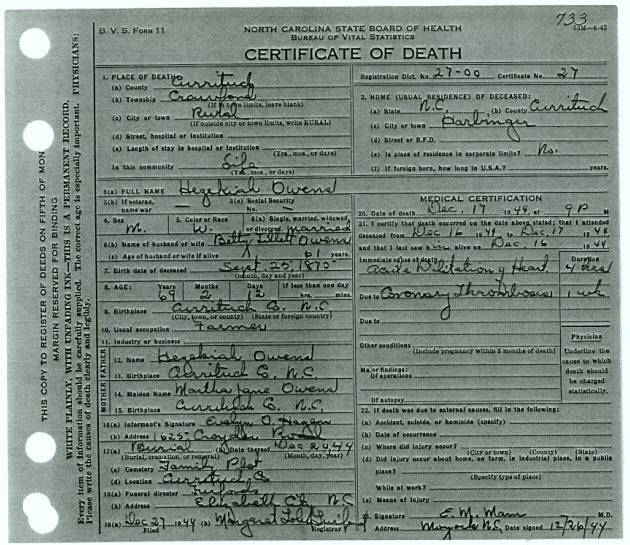 733
B. V. S. FORM 11
NORTH CAROLINA STATE BOARD OF HEALTH
BUREAU OF VITAL STATISTICS
CERTIFICATE OF DEATH
THIS COPY TO REGISTER OF DEEDS ON FIFTH OF MON
MARGIN RESERVED FOR BINDING
WRITE PLAINLY, WITH UNFADING INK—THIS IS A PERMANENT RECORD.
Every item of information should be carefully supplied. The correct age is especially important. PHYSICIANS:
Please write the causes of death clearly and legibly.
1. PLACE OF DEATH:
(a) County Currituck
(b) Township Crawford
(If in town limits, leave blank)
(c) City or town Rural
(If outside city or town limits, write RURAL)
(d) Street, hospital or Institution
(e) Length of stay in hospital or Institution
(Yrs., mos., or days)
In this community Life
(Yrs., mos., or days)
Registration Dist. No. 27-00 Certificate No. 27
2. HOME (USUAL RESIDENCE) OF DECEASED:
(a) State N.C. (b) County Currituck
(c) City or town Harbinger
(d) Street or R.F.D.
(e) Is place of residence in corporate limits? No.
(f) If foreign born, how long in U.S.A.? years.
3(a) FULL NAME Hezekiah Owens
3(b) If veteran, name war — 3(c) Social Security No. —
4. Sex M. 5. Color or Race W. 6(a) Single, married, widowed, or divorced married
6(b) Name of husband or wife Betty Lillett Owens
(c) Age of husband or wife if alive 61 years.
7. Birth date of deceased Sept. 25, 1875
(month, day and year)
8. AGE: Years 69 Months 2 Days 12 If less than one day hrs. mins.
9. Birthplace Currituck Co. N.C.
(City, town, or county) (State or foreign country)
10. Usual occupation Farmer
11. Industry or business
FATHER
12. Name Hezekiah Owens
13. Birthplace Currituck Co. N.C.
MOTHER
14. Maiden Name Martha Jane Owens
15. Birthplace Currituck Co. N.C.
16(a) Informant's Signature Evelyn O.
(b) Address 6257 Road
17(a) Burial (b) Date thereof Dec 20 44
(Burial, cremation, or removal) (Month, day, year)
(c) Cemetery Family Plot
(d) Location Currituck Co
18(a) Funeral director
(b) Address Elizabeth City N.C.
19(a) Dec 27 1944 (b) Margaret
Filed Registrar
MEDICAL CERTIFICATION
20. Date of death Dec. 17 1944, at 9 P M
21. I certify that death occurred on the date above stated; that I attended
deceased from Dec 16 1944, to Dec. 17 1944
and that I last saw him alive on Dec. 16 1944
Immediate cause of death Duration
Acute Dilitation of Heart 4 hrs
Due to Coronary Thrombosis 1 wk
Due to
Other conditions
(Include pregnancy within 3 months of death)
Major findings:
Of operations
Of autopsy
Physician
Underline the cause to which death should be charged statistically.
22. If death was due to external causes, fill in the following:
(a) Accident, suicide, or homicide (specify)
(b) Date of occurrence
(c) Where did injury occur?
(City or town) (County) (State)
(d) Did injury occur about home, on farm, in industrial place, in a public
place?
(Specify type of place)
While at work?
(e) Means of Injury
23. Signature E. M. Mann M.D.
Address Moyock N.C. Date signed 12/26/44